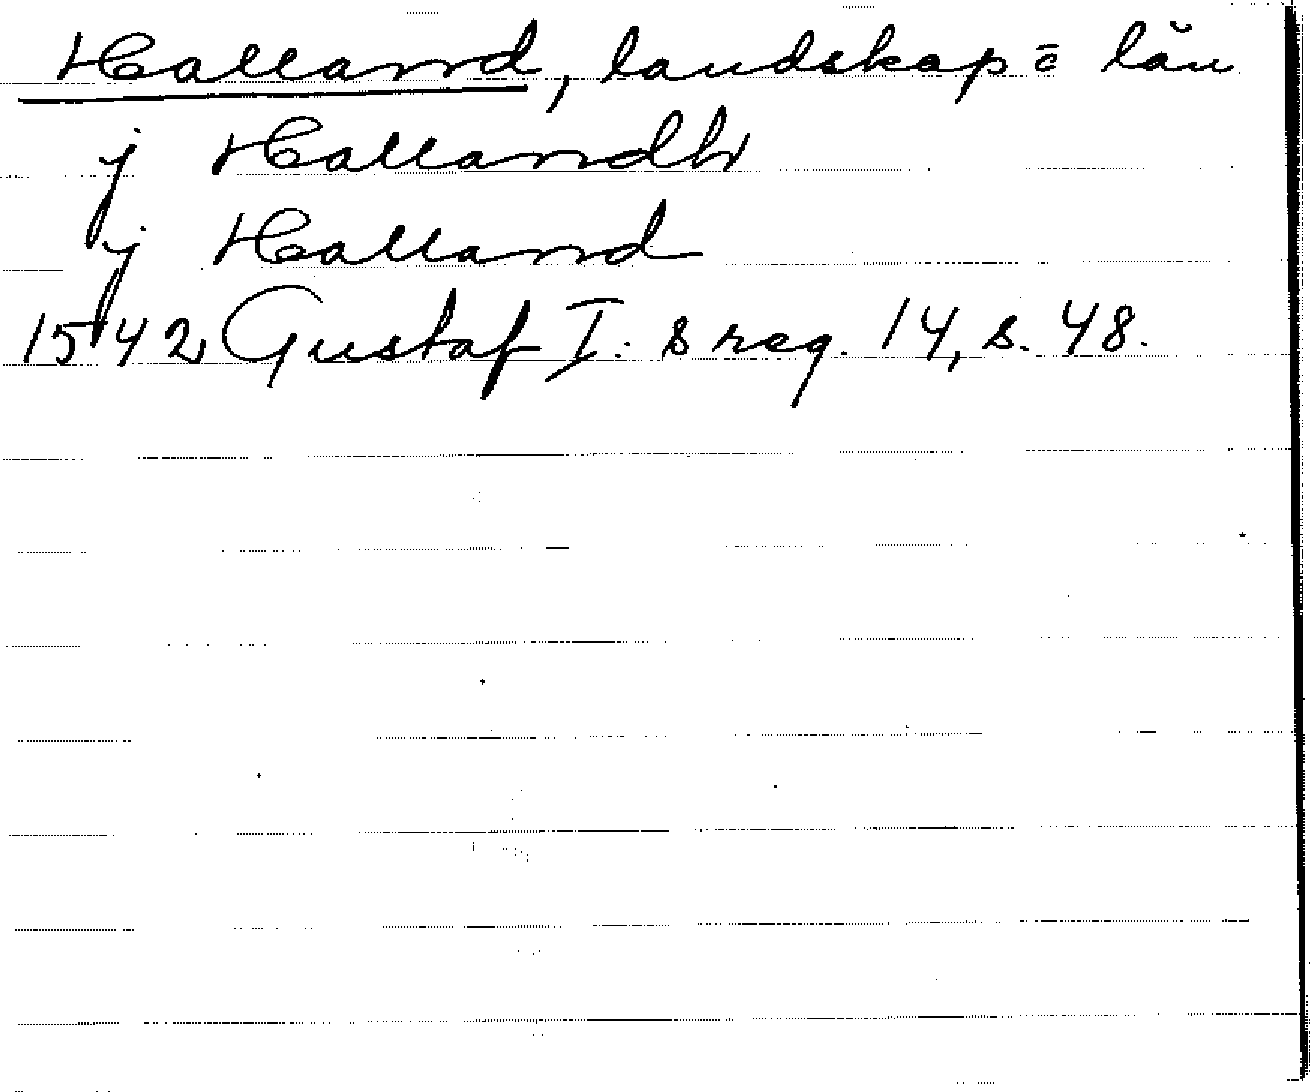 Halland, landskap = län
j Hallandh
j Halland
1542 Gustaf I:s reg. 14, s. 48.